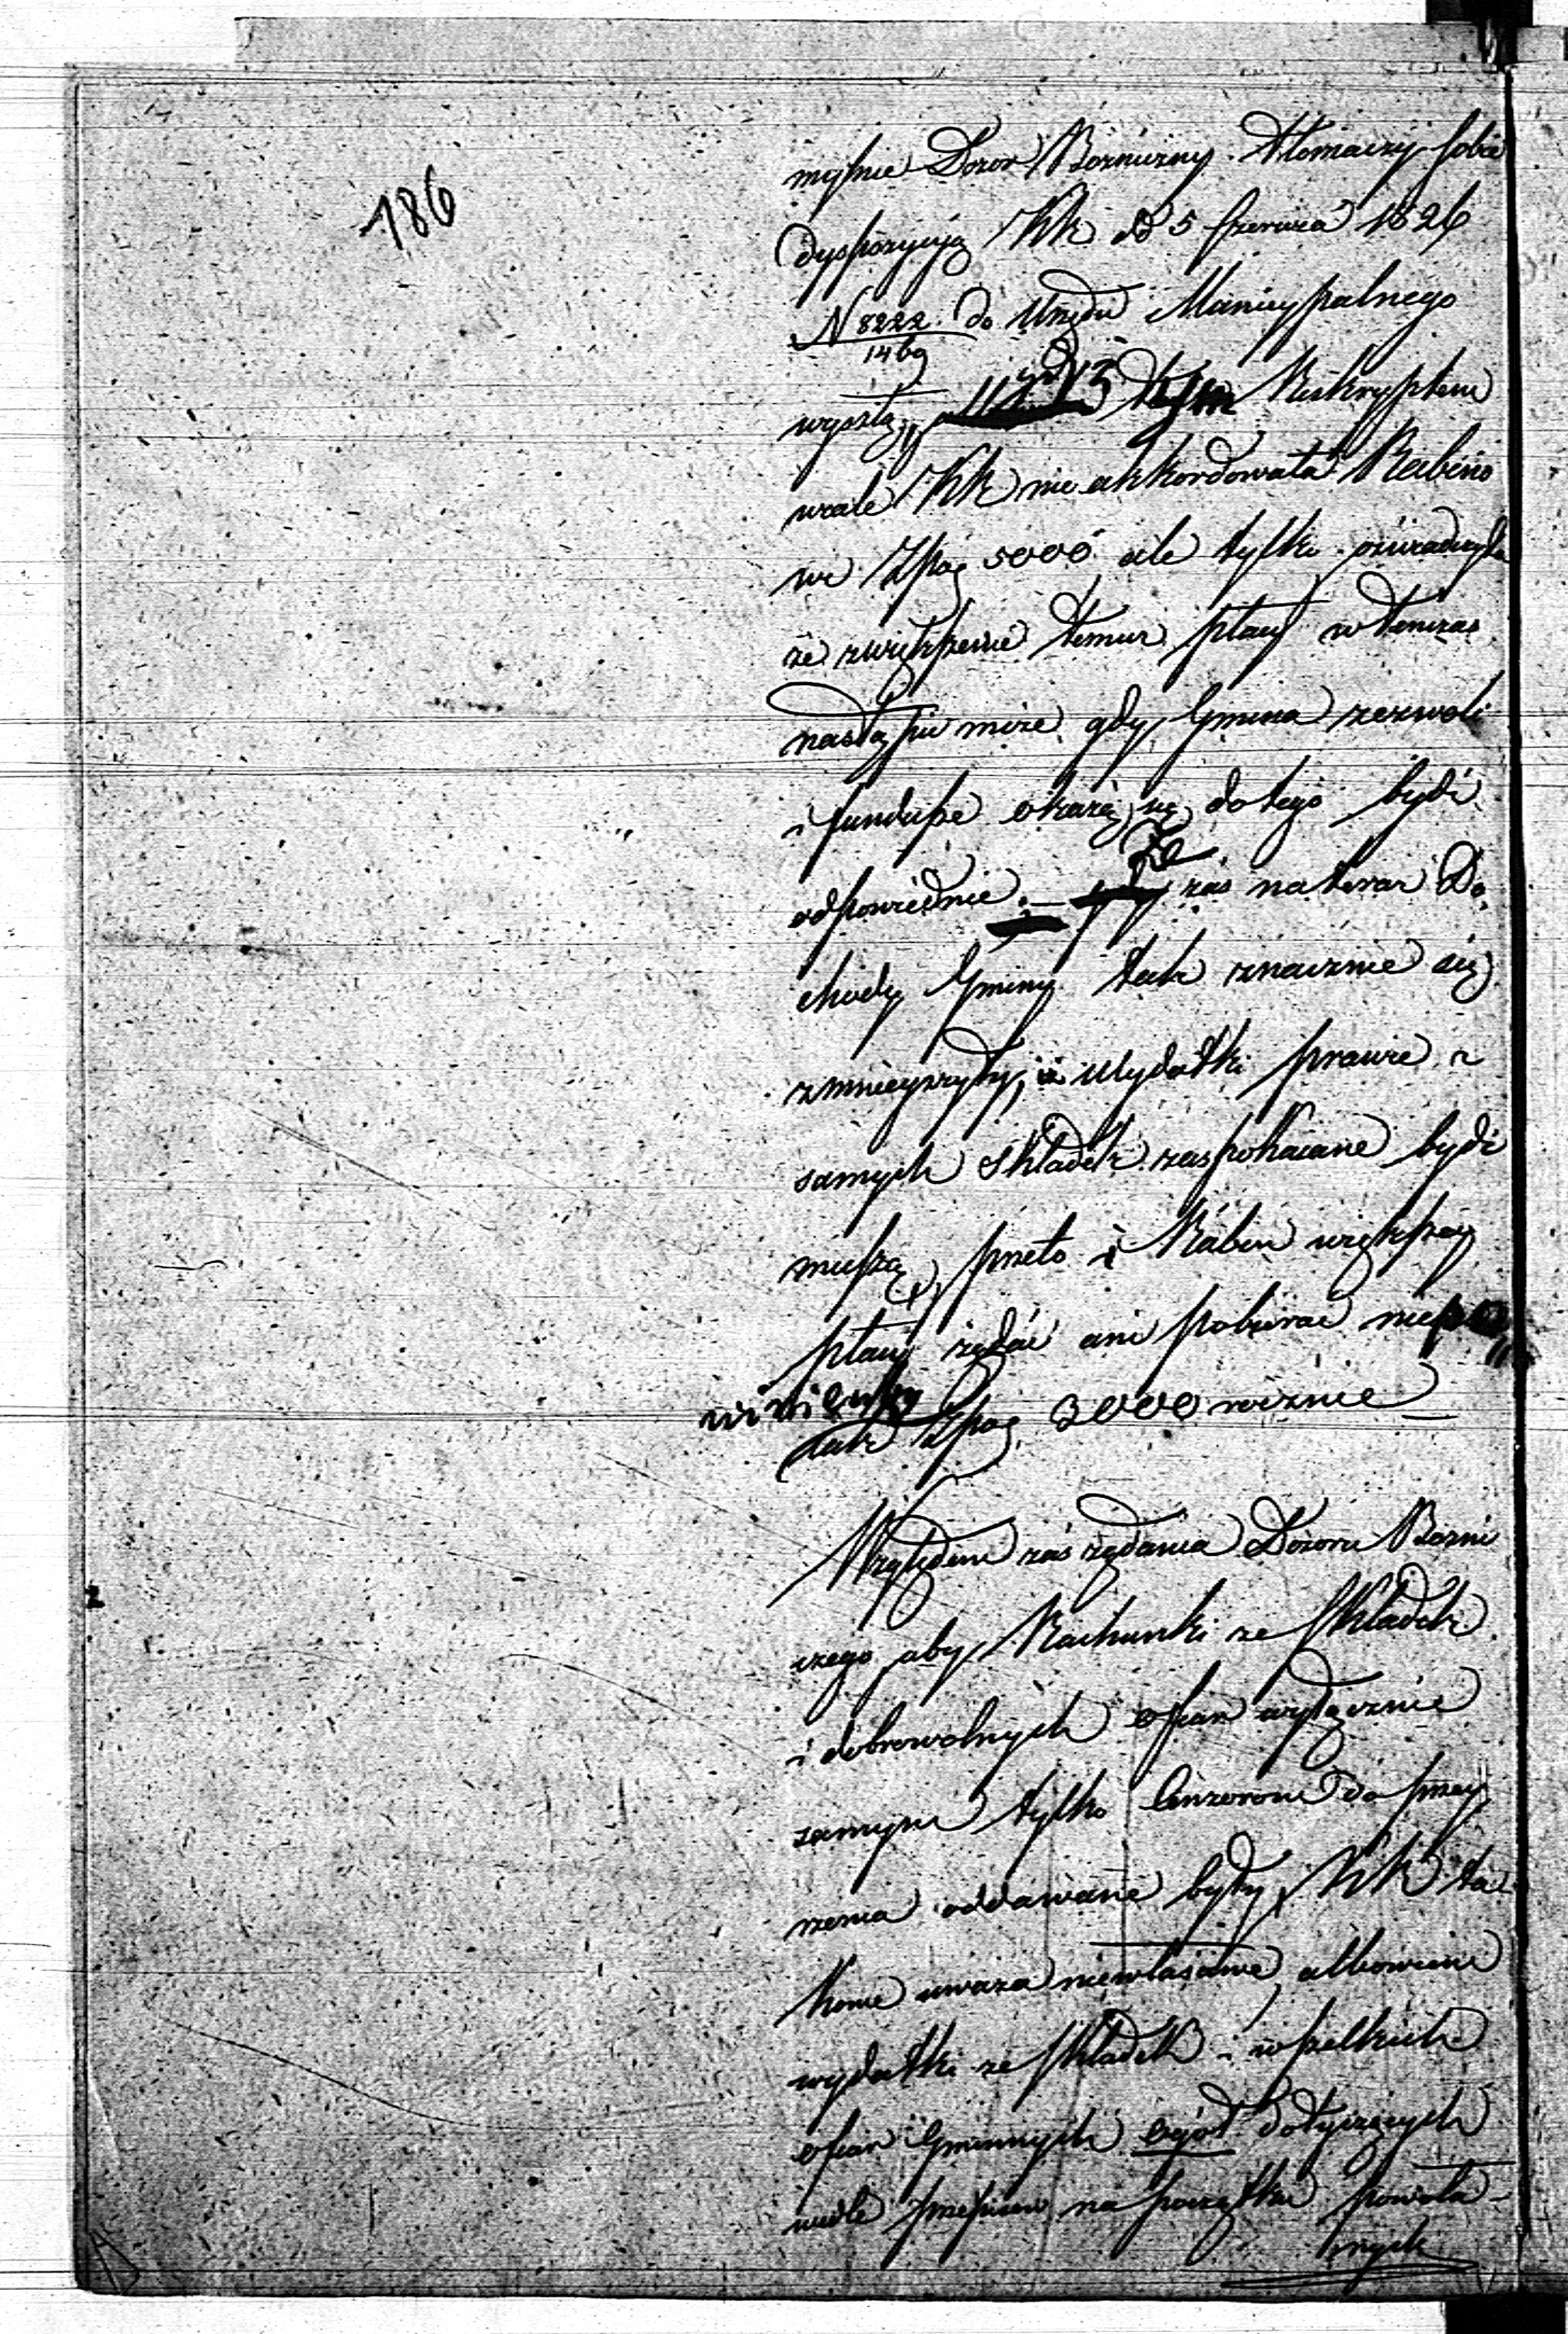 186
mylnie Dozor Bozniczny tłomaczy sobie
dyspozycyą KK d 5 Czerwca 1826
N 8222/1469 do Urzędu Municypalnego
wyszłą, gdyż tym Reskryptem
wcale KK nie akkordowała Rabino
wi Zpoz 5000 ale tylko oświadczyła
że zwiększenie temuż płacy wtenczas
nastąpić może gdy Gmina zezwoli
i fundusze okażą się do tego bydź
odpowiednie. Że zaś na teraz Do
chody Gminy tak znacznie się
zmnieyszyły, iż Wydatki prawie z
samych składek zaspokaiane bydź
muszą, przeto i Rabin większey
płacy żądać ani pobierać nie
winien tak Zpoz 3000 rocznie
Względem zaś żądania Dozoru Bozni
czego aby Rachunki ze składek
i dobrowolnych ofiar wyłącznie
samym tylko Cenzorom do przey
rzenia oddawane były, KK ta
kowe uważa niewłaściwe, albowiem
wydatki ze składek i wszelkich
ofiar Gminnych ogół dotyczących
wedle przepisow na początku powoła-
nych